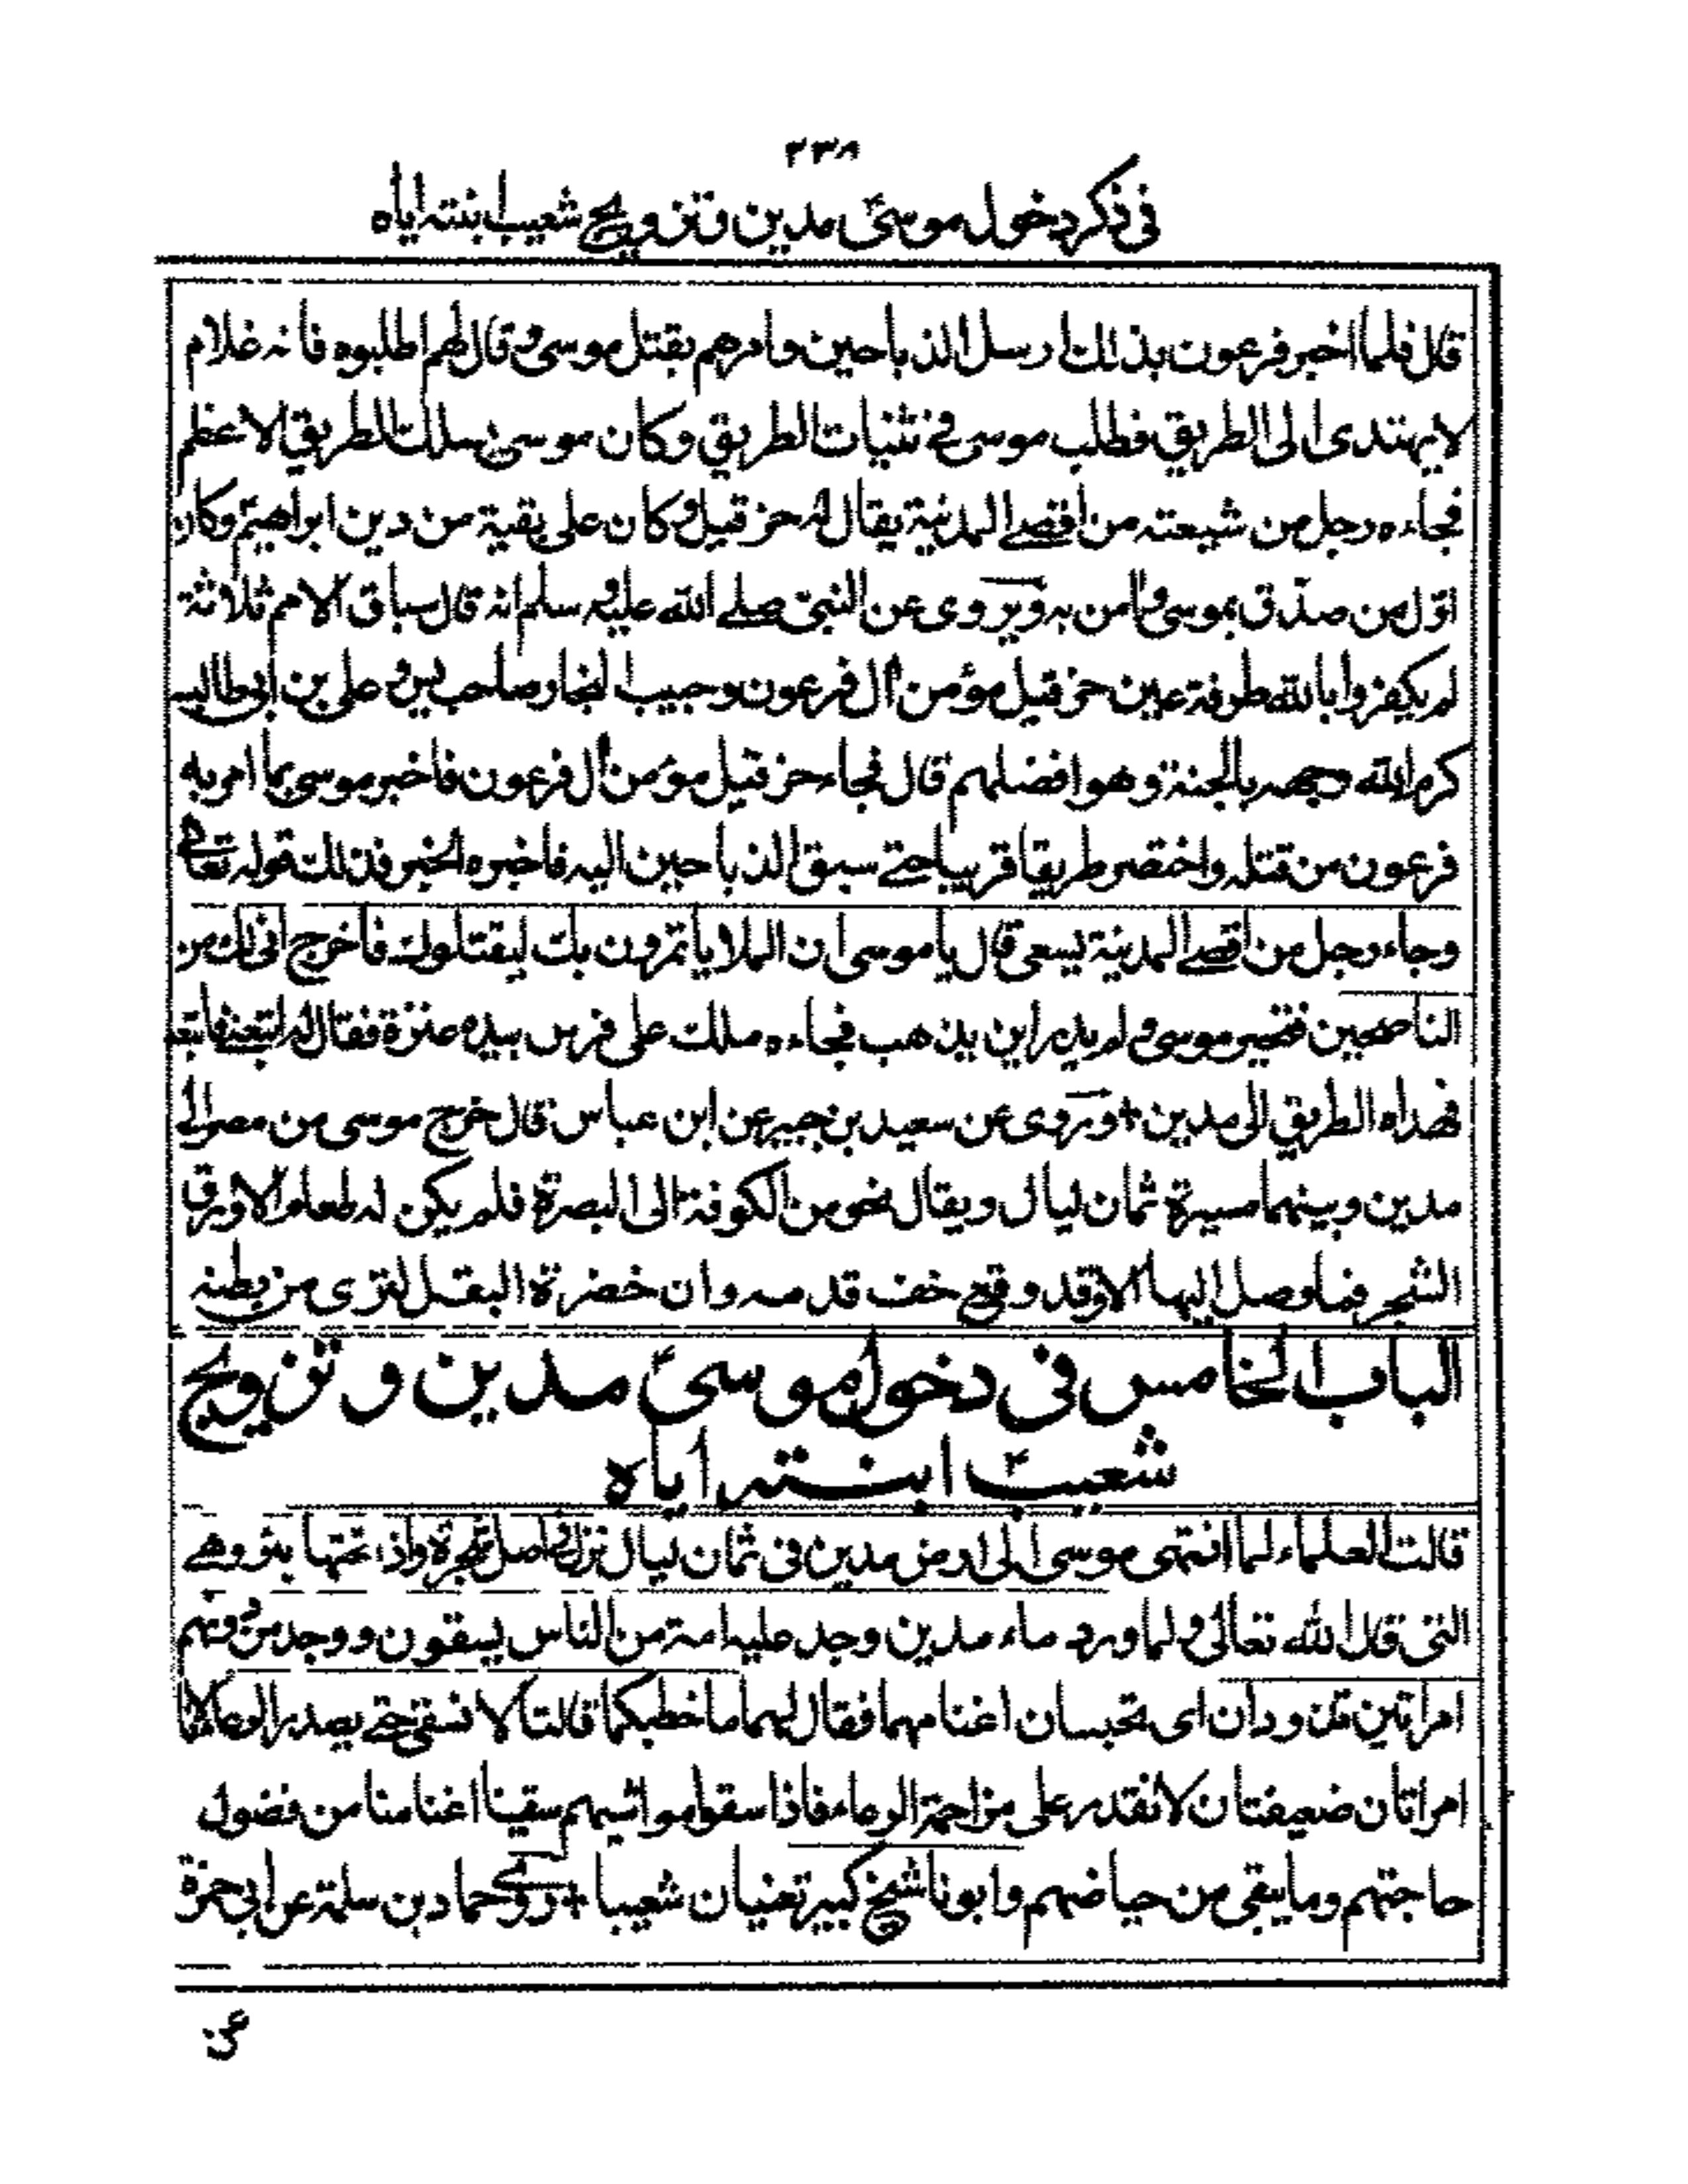 ٢٣٨
في ذكر دخول موسىٰ مدين وتزويج شعيب ابنته اياه
قال فلما اخبر فرعون بذلك ارسل الذباحين وامرهم بقتل موسى وقال لهم اطلبوه فانه غلام
لا يهتدى الى الطريق فطلب موسى في ثنيات الطريق وكان موسى سلك الطريق الاعظم
فجاءه رجل من شيعته من اقصے المدينة يقال له حزقيل وكان على بقية من دين ابراهيم وكان
اول من صدّق بموسى وآمن به ويروى عن النبى صلے الله عليه وسلم انه قال سباق الامم ثلاثة
لم يكفروا بالله طرفة عين حزقيل مؤمن آل فرعون وحبيب النجار صاحب يس وعلى بن ابى طالب
كرم الله وجهه بالجنة وهو افضلهم قال فجاء حزقيل مؤمن آل فرعون فاخبر موسى بما امر به
فرعون من قتله واختصر طريقا قريبا حتے سبق الذباحين اليه فاخبره الخبر فذلك قوله تعالى
وجاء رجل من اقصے المدينة يسعى قال يا موسى ان الملا ياتمرون بك ليقتلوك فاخرج انى لك من
الناصحين فتحير موسى ولم يدر اين يذهب فجاءه ملك على فرس بيده عنزة فقال له اتبعنى فاتبعه
فهداه الطريق الى مدين + ويروى عن سعيد بن جبير عن ابن عباس قال خرج موسى من مصر الے
مدين وبينهما مسيرة ثمان ليال ويقال نحو من الكوفة الى البصرة فلم يكن له طعام الا ورق
الشجر فما وصل اليها الا وقد وقع خف قدمه وان خضرة البقل لترى من بطنه
الباب الخامس فى دخول موسىٰ مدين وتزويج
شعيبؑ ابنته اياه
قالت العلماء لما انتهى موسى الى ارض مدين فى ثمان ليال نزل فى اصل شجرة واذا تحتها بئر وهے
التى قال الله تعالى ولما ورد ماء مدين وجد عليه امة من الناس يسقون ووجد من دونهم
امراتين تذودان اى تحبسان اغنامهما فقال لهما ما خطبكما قالتا لا نسقى حتے يصدر الرعاء لانا
امراتان ضعيفتان لا نقدر على مزاحمة الرعاء فاذا سقوا مواشيهم سقينا اغنامنا من فضول
حاجتهم وما يبقى من حياضهم وابونا شيخ كبير تعنيان شعيبا + روى حماد بن سلمة عن ابى حمزة
عن